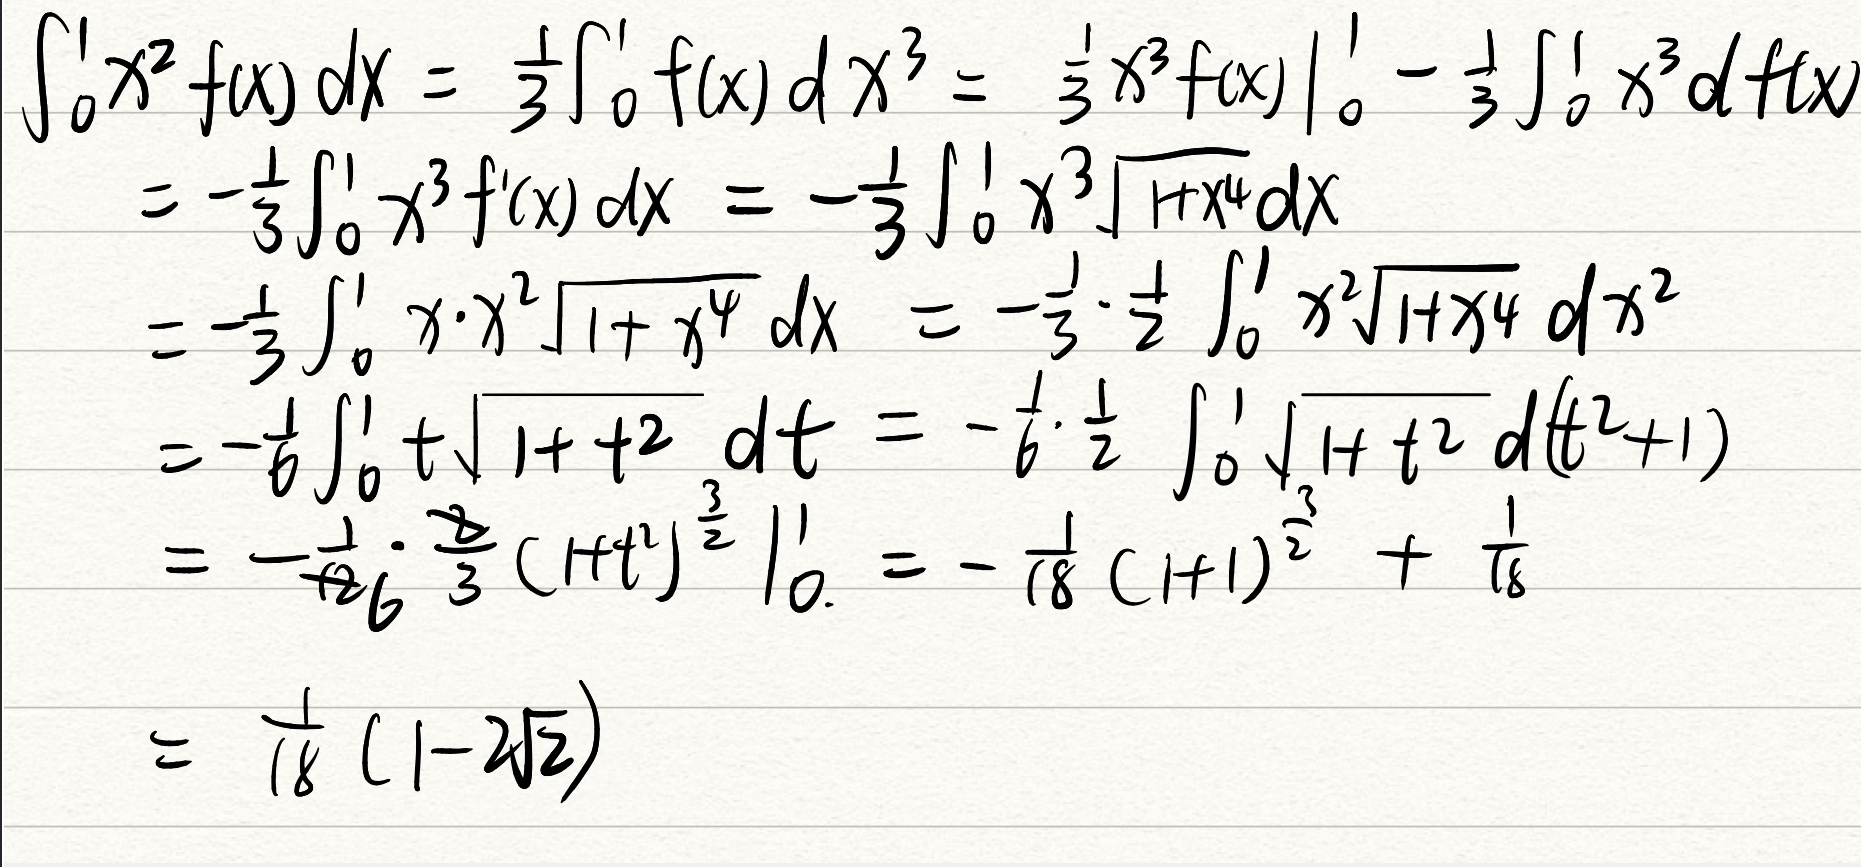 ∫₀¹ x² f(x) dx = 1/3 ∫₀¹ f(x) d x³ = 1/3 x³ f(x) |₀¹ - 1/3 ∫₀¹ x³ d f(x)
= -1/3 ∫₀¹ x³ f'(x) dx = -1/3 ∫₀¹ x³ √(1+x⁴) dx
= -1/3 ∫₀¹ x·x² √(1+x⁴) dx = -1/3 · 1/2 ∫₀¹ x² √(1+x⁴) d x²
= -1/6 ∫₀¹ t √(1+t²) dt = -1/6 · 1/2 ∫₀¹ √(1+t²) d(t²+1)
= -1/12 6 · 2/3 (1+t²)^(3/2) |₀¹. = -1/18 (1+1)^(3/2) + 1/18
= 1/18 (1-2√2)